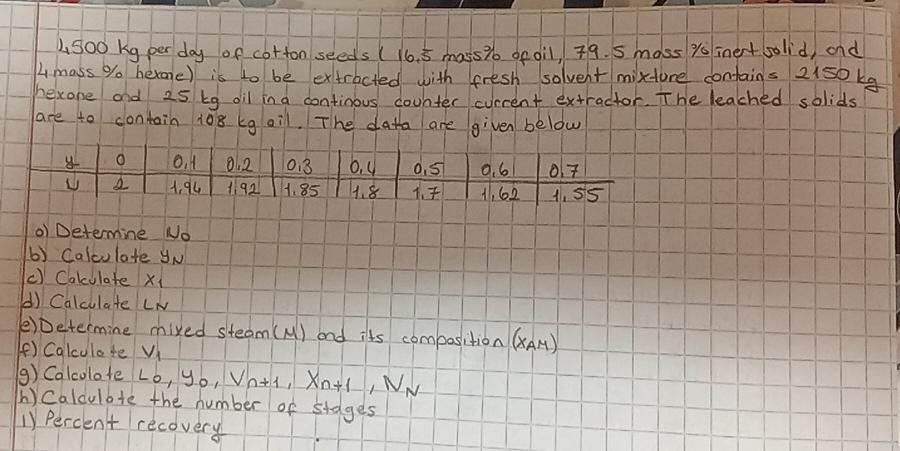 4500 kg per day of cotton seeds ( 16.5 mass% of oil, 79.5 mass % inert solid, and
4 mass % hexane) is to be extracted with fresh solvent mixture contains 2150 kg
hexane and 25 kg oil in a continous counter current extractor. The leached solids
are to contain 108 kg oil. The data are given below
y 0 0,1 0,2 0,3 0,4 0,5 0,6 0,7
N 2 1,96 1,92 1,85 1,8 1,7 1,62 1,55
a) Determine No
b) Calculate yN
c) Calculate x1
d) Calculate LN
e) Determine mixed steam (M) and its composition (XAM)
f) Calculate V1
g) Calculate Lo, yo, Vn+1, Xn+1, NN
h) Calculate the number of stages
i) Percent recovery